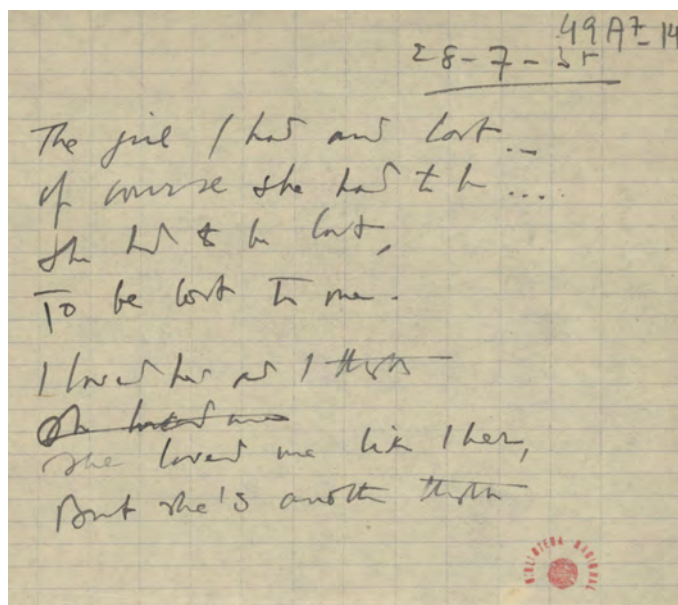 49A7-14
28-7-35
The girl I had and lost...
Of course she had to be ...
She had to be lost,
To be lost to me.
I loved her and I
She loved me
She loved me like I her,
But she's another
BIBLIOTECA NACIONAL